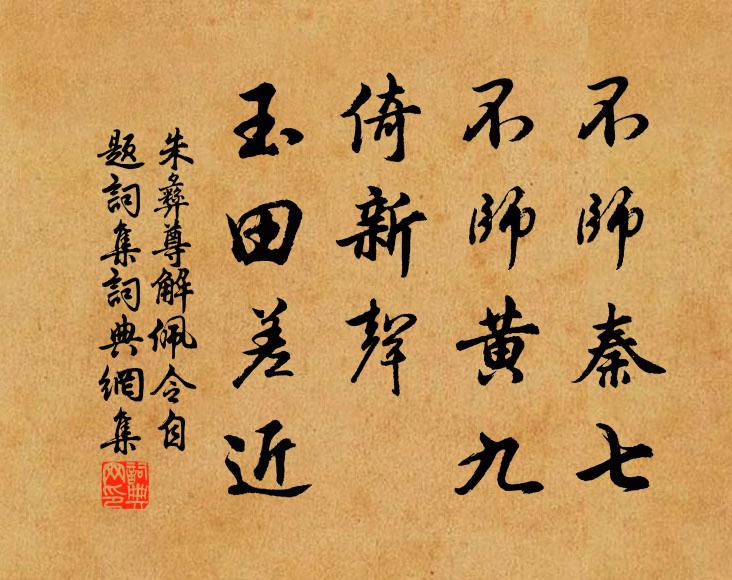 不師秦七
不師黃九
倚新聲
玉田差近
朱彝尊解佩令自
題詞集詞典網集
詞典網印